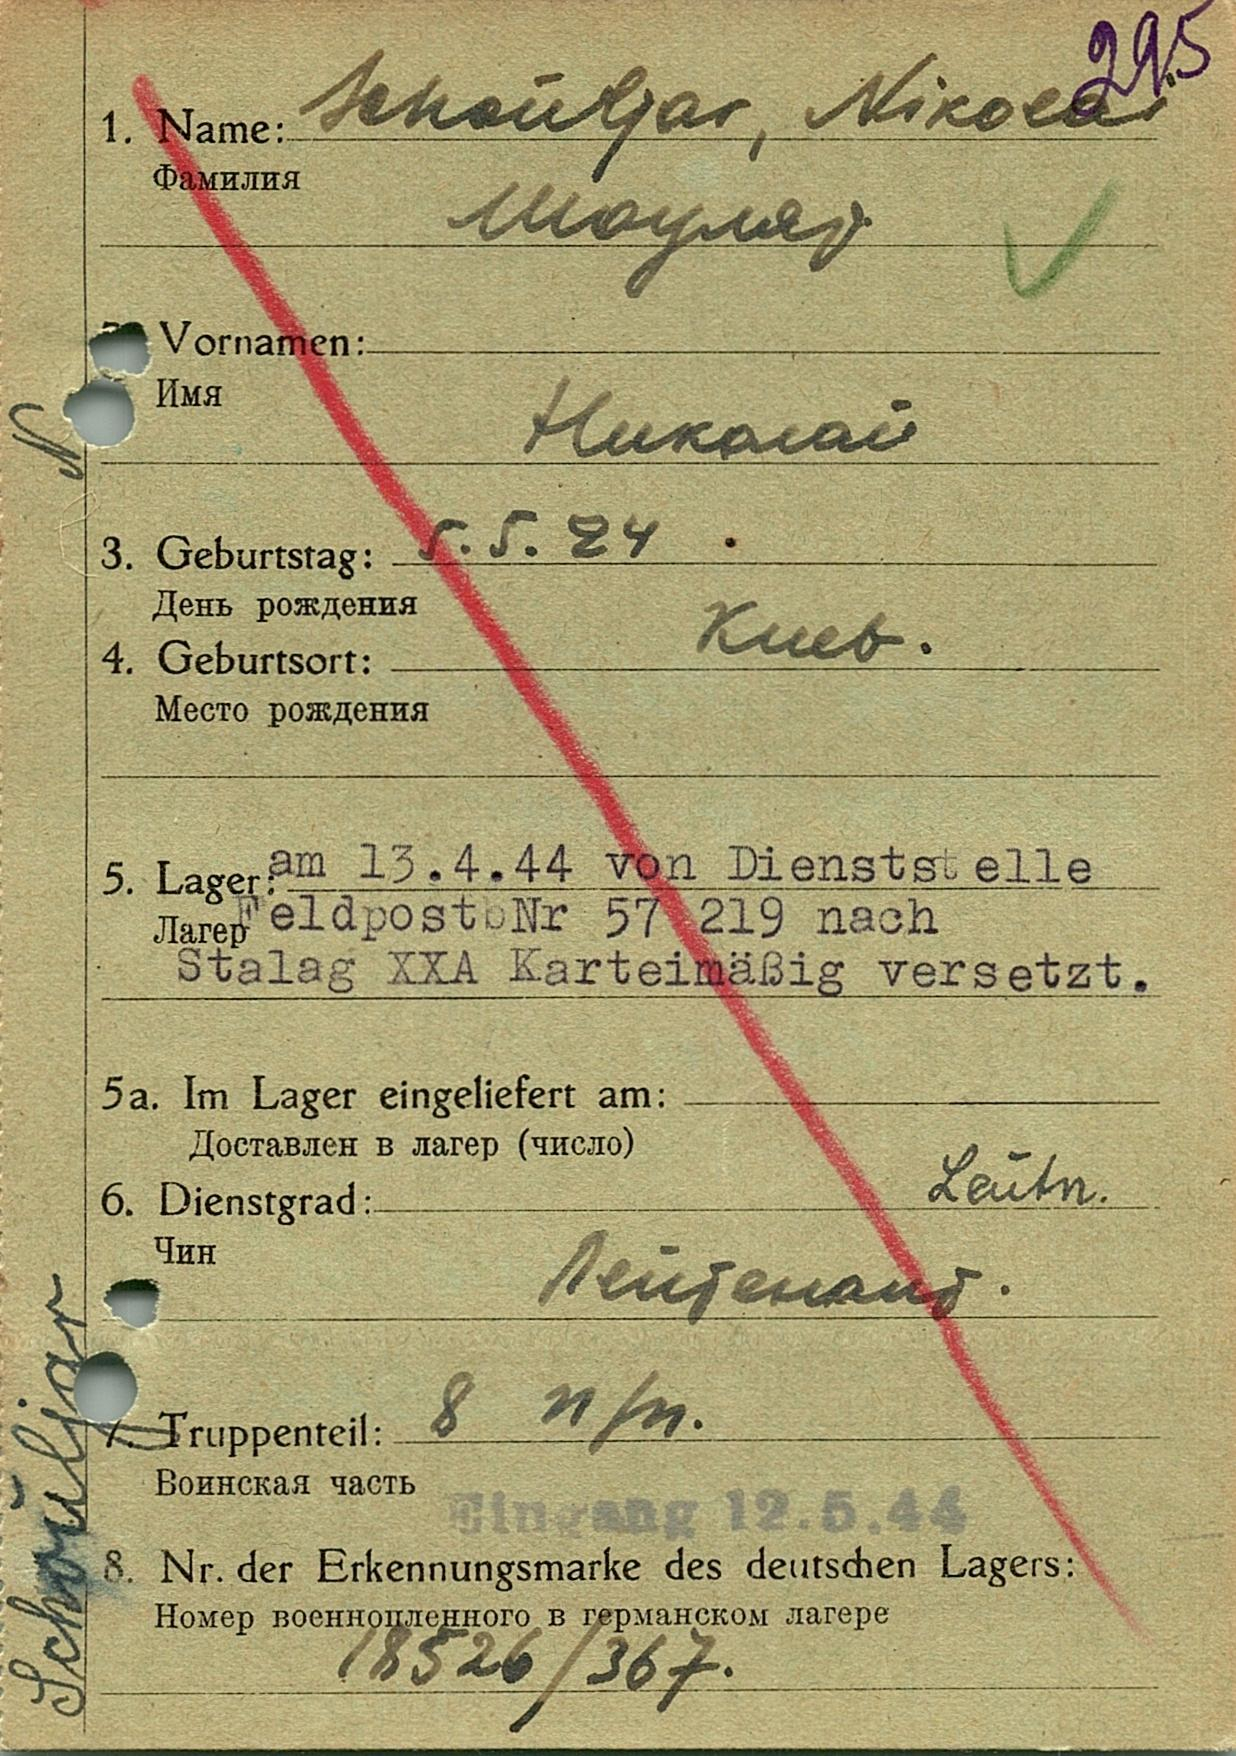 295
1. Name: Schoüljar, Nikolai
Фамилия
Шоуляр
Vornamen:
Имя
Николай
N
3. Geburtstag: 5.5.24
День рождения
Киев.
4. Geburtsort:
Место рождения
5. Lager: am 13.4.44 von Dienststelle
Лагер Feldpost Nr 57 219 nach
Stalag XXA Karteimäßig versetzt.
5a. Im Lager eingeliefert am:
Доставлен в лагер (число)
Leütn.
6. Dienstgrad:
Чин
Лейтенант.
7. Truppenteil: 8 п/п.
Воинская часть
Eingang 12.5.44
8. Nr. der Erkennungsmarke des deutschen Lagers:
Номер военнопленного в германском лагере
18526/367.
Schoüljar